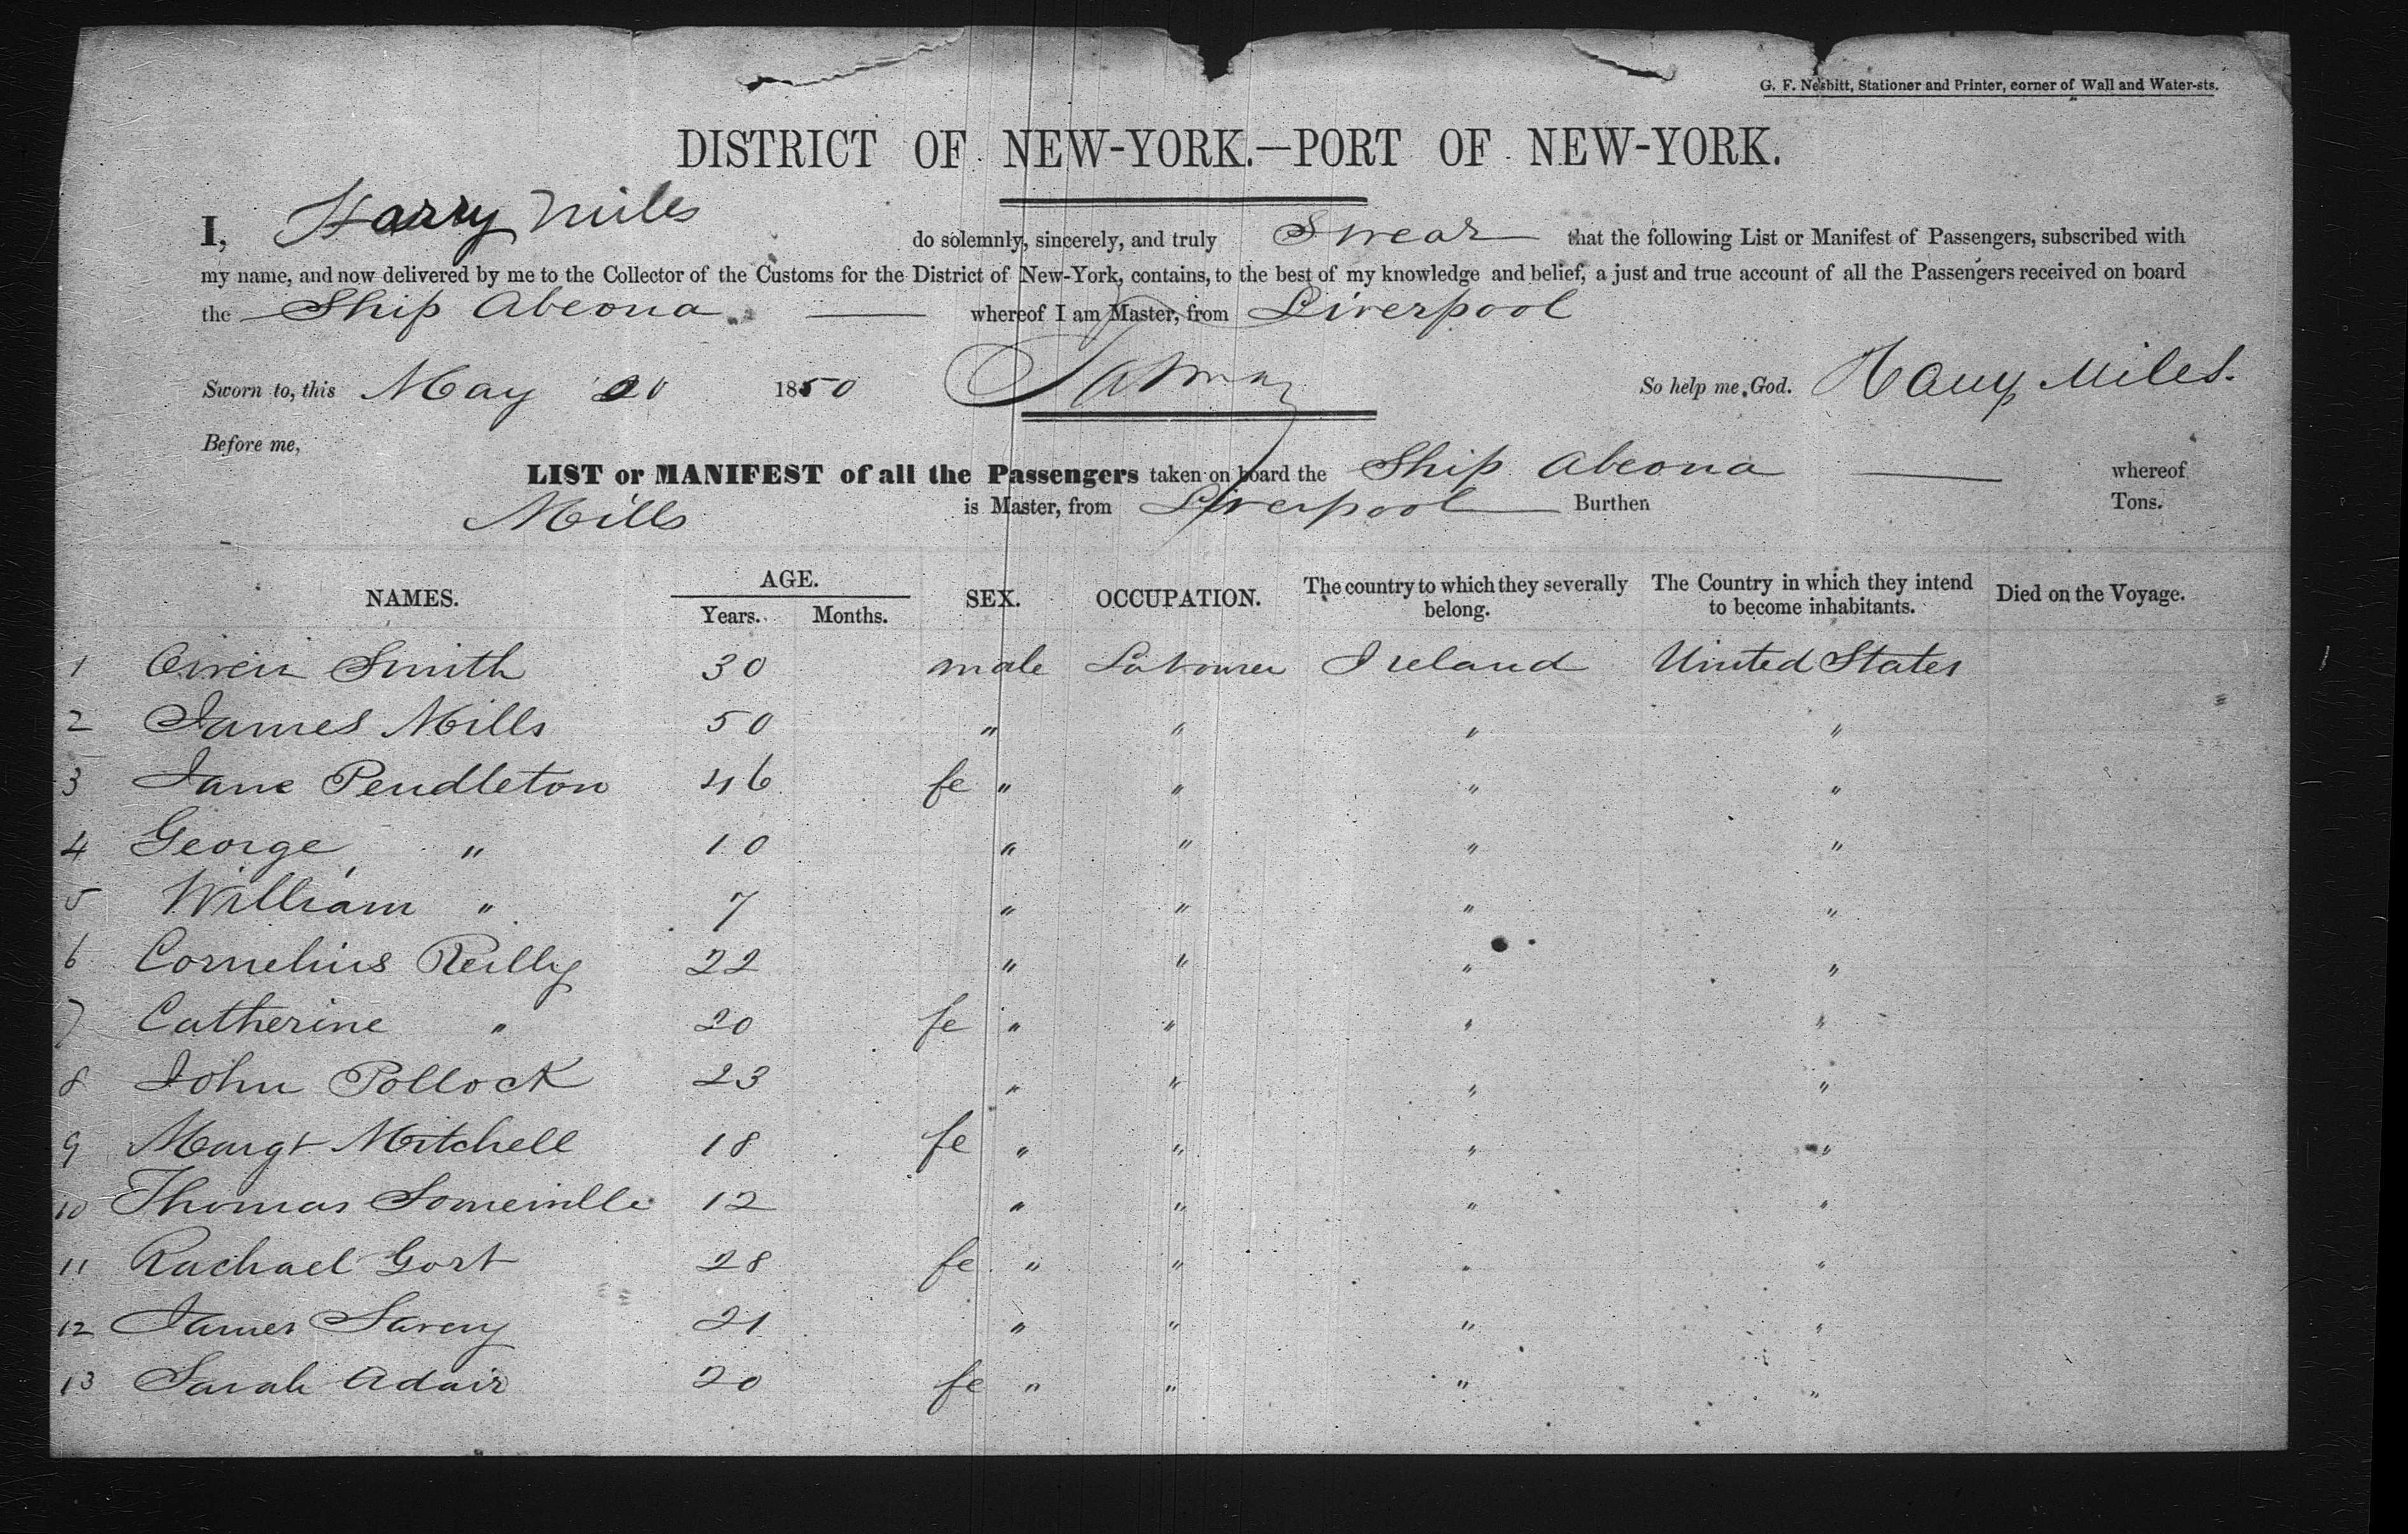 G. F. Nesbitt, Stationer and Printer, corner of Wall and Water-sts.
DISTRICT OF NEW-YORK.—PORT OF NEW-YORK.
I, Harry Miles do solemnly, sincerely, and truly Swear that the following List or Manifest of Passengers, subscribed with
my name, and now delivered by me to the Collector of the Customs for the District of New-York, contains, to the best of my knowledge and belief, a just and true account of all the Passengers received on board
the Ship Abeona whereof I am Master, from Liverpool
Sworn to, this May 20 1850 So help me, God. Harry Miles.
Before me,
LIST or MANIFEST of all the Passengers taken on board the Ship Abeona whereof
Mills is Master, from Liverpool Burthen Tons.
NAMES. AGE. Years. Months. SEX. OCCUPATION. The country to which they severally belong. The Country in which they intend to become inhabitants. Died on the Voyage.
1 Owen Smith 30 male Labourer Ireland United States
2 James Mills 50 " " " "
3 Jane Pendleton 46 fe " " " "
4 George " 10 " " " "
5 William " 7 " " " "
6 Cornelius Reilly 22 " " " "
7 Catherine " 20 fe " " " "
8 John Pollock 23 " " " "
9 Margt Mitchell 18 fe " " " "
10 Thomas Somerville 12 " " " "
11 Rachael Gort 28 fe " " " "
12 James Savery 21 " " " "
13 Sarah Adair 20 fe " " " "